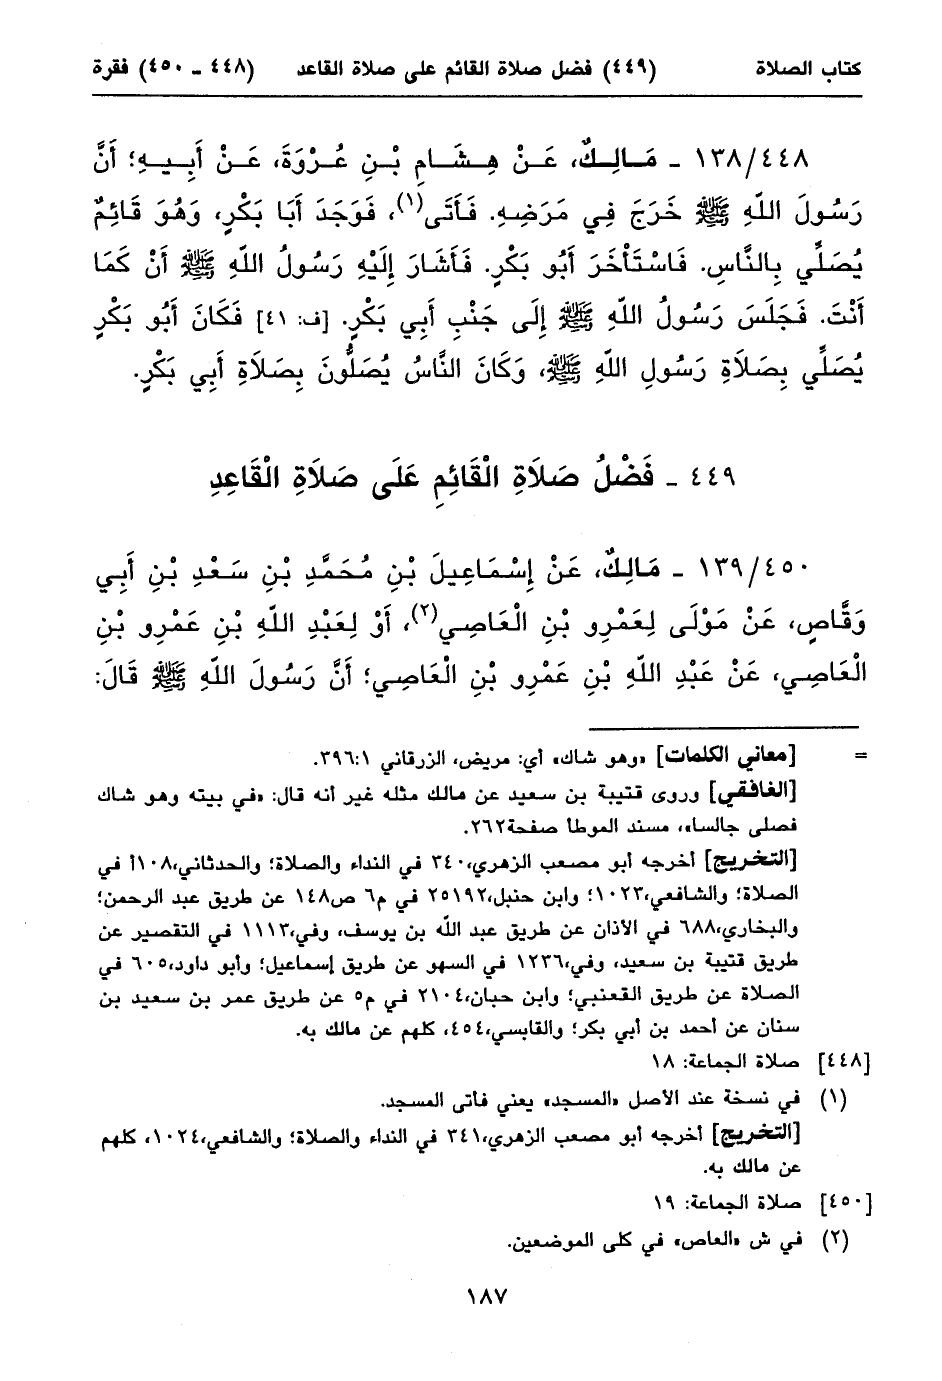 كتاب الصلاة (٤٤٩) فضل صلاة القائم على صلاة القاعد (٤٤٨ - ٤٥٠) فقرة
١٣٨/٤٤٨ - مَالِكٌ، عَنْ هِشَامِ بْنِ عُرْوَةَ، عَنْ أَبِيهِ؛ أَنَّ
رَسُولَ اللّهِ ﷺ خَرَجَ فِي مَرَضِهِ. فَأَتَى(١)، فَوَجَدَ أَبَا بَكْرٍ، وَهُوَ قَائِمٌ
يُصَلِّي بِالنَّاسِ. فَاسْتَأْخَرَ أَبُو بَكْرٍ. فَأَشَارَ إِلَيْهِ رَسُولُ اللّهِ ﷺ أَنْ كَمَا
أَنْتَ. فَجَلَسَ رَسُولُ اللّهِ ﷺ إِلَى جَنْبِ أَبِي بَكْرٍ. [ف: ٤١] فَكَانَ أَبُو بَكْرٍ
يُصَلِّي بِصَلَاةِ رَسُولِ اللّهِ ﷺ، وَكَانَ النَّاسُ يُصَلُّونَ بِصَلَاةِ أَبِي بَكْرٍ.
٤٤٩ - فَضْلُ صَلَاةِ الْقَائِمِ عَلَى صَلَاةِ الْقَاعِدِ
١٣٩/٤٥٠ - مَالِكٌ، عَنْ إِسْمَاعِيلَ بْنِ مُحَمَّدِ بْنِ سَعْدِ بْنِ أَبِي
وَقَّاصٍ، عَنْ مَوْلَى لِعَمْرِو بْنِ الْعَاصِي(٢)، أَوْ لِعَبْدِ اللّهِ بْنِ عَمْرِو بْنِ
الْعَاصِي، عَنْ عَبْدِ اللّهِ بْنِ عَمْرِو بْنِ الْعَاصِي؛ أَنَّ رَسُولَ اللّهِ ﷺ قَالَ:
= [معاني الكلمات] «وهو شاك» أي: مريض، الزرقاني ٣٩٦:١.
[الغافقي] وروى قتيبة بن سعيد عن مالك مثله غير أنه قال: «في بيته وهو شاك
فصلى جالسا»، مسند الموطأ صفحة٢٦٢.
[التخريج] أخرجه أبو مصعب الزهري،٣٤٠ في النداء والصلاة؛ والحدثاني،١٠٨أ في
الصلاة؛ والشافعي،١٠٢٣؛ وابن حنبل،٢٥١٩٢ في م٦ ص١٤٨ عن طريق عبد الرحمن؛
والبخاري،٦٨٨ في الأذان عن طريق عبد الله بن يوسف، وفي،١١١٣ في التقصير عن
طريق قتيبة بن سعيد، وفي،١٢٣٦ في السهو عن طريق إسماعيل؛ وأبو داود،٦٠٥ في
الصلاة عن طريق القعنبي؛ وابن حبان،٢١٠٤ في م٥ عن طريق عمر بن سعيد بن
سنان عن أحمد بن أبي بكر؛ والقابسي،٤٥٤، كلهم عن مالك به.
[٤٤٨] صلاة الجماعة: ١٨
(١) في نسخة عند الأصل «المسجد» يعني فأتى المسجد.
[التخريج] أخرجه أبو مصعب الزهري،٣٤١ في النداء والصلاة؛ والشافعي،١٠٢٤، كلهم
عن مالك به.
[٤٥٠] صلاة الجماعة: ١٩
(٢) في ش «العاص» في كلى الموضعين.
١٨٧